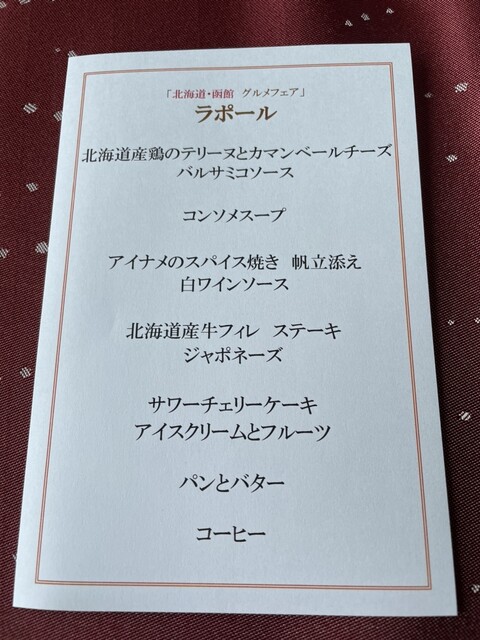 「北海道・函館 グルメフェア」
ラポール
北海道産鶏のテリーヌとカマンベールチーズ
バルサミコソース
コンソメスープ
アイナメのスパイス焼き 帆立添え
白ワインソース
北海道産牛フィレ ステーキ
ジャポネーズ
サワーチェリーケーキ
アイスクリームとフルーツ
パンとバター
コーヒー